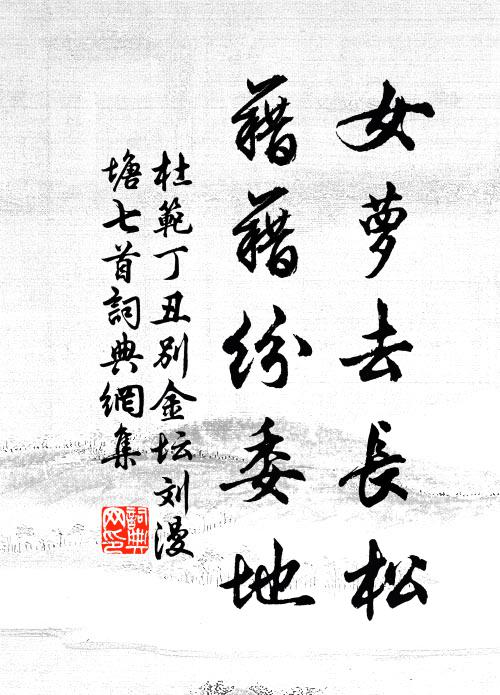 女萝去長松
藉藉紛委地
杜範丁丑别金坛刘漫
塘七首詞典網集
詞典网印